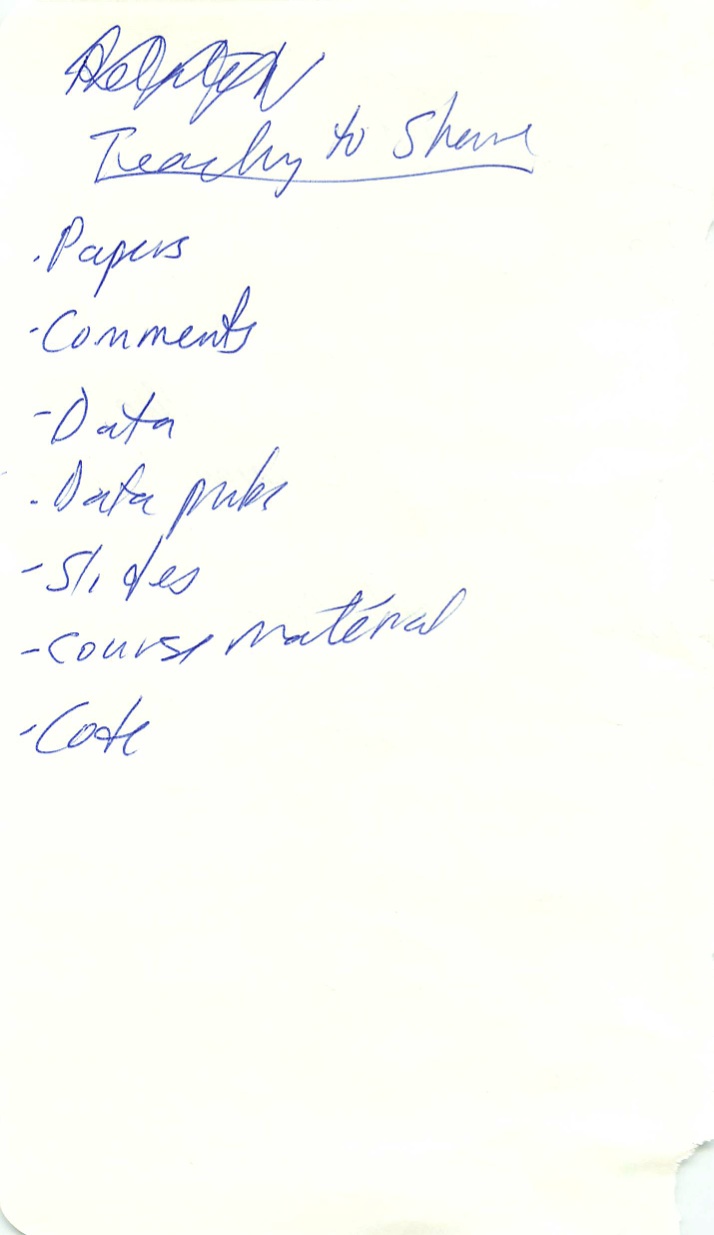 Teaching to Share
· Papers
- Comments
- Data
· Data pubs
- Slides
- Course material
- Code